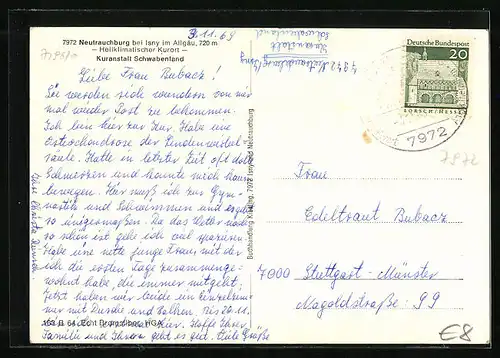 7972 Neutrauchburg bei Isny im Allgäu, 720 m
— Heilklimatischer Kurort —
Kuranstalt Schwabenland
3.11.69
Liebe Frau Bubacz!
Sie werden sich wundern von mir
mal wieder Post zu bekommen.
Ich bin hier zur Kur. Habe eine
Osteochondrose der Lendenwirbel-
säule. Hatte in letzter Zeit oft dolle
Schmerzen und konnte mich kaum
bewegen. Hier muß ich zur Gym-
nastik und Schwimmen und es geht
so einigermaßen. Da das Wetter noch
so schön ist gehe ich viel spazieren.
Habe eine nette junge Frau mit der
ich die ersten Tage zusammenge-
wohnt habe, die immer mitgeht.
Jetzt haben wir beide ein Einzelzimmer
mit Dusche und Balkon. Bis 20.11.
Hoffe Ihrer
Familie und Ihnen geht es gut. Viele Grüße
Ihre Christa
Buchhandlung 7972 Isny und Neutrauchburg
7972
Kuranstalt
Schwabenland
Deutsche Bundespost
20
LORSCH/HESSEN
7972
7972
Frau
Edeltraut Bubacz
7000 Stuttgart-Münster
Nagoldstraße 99
€8